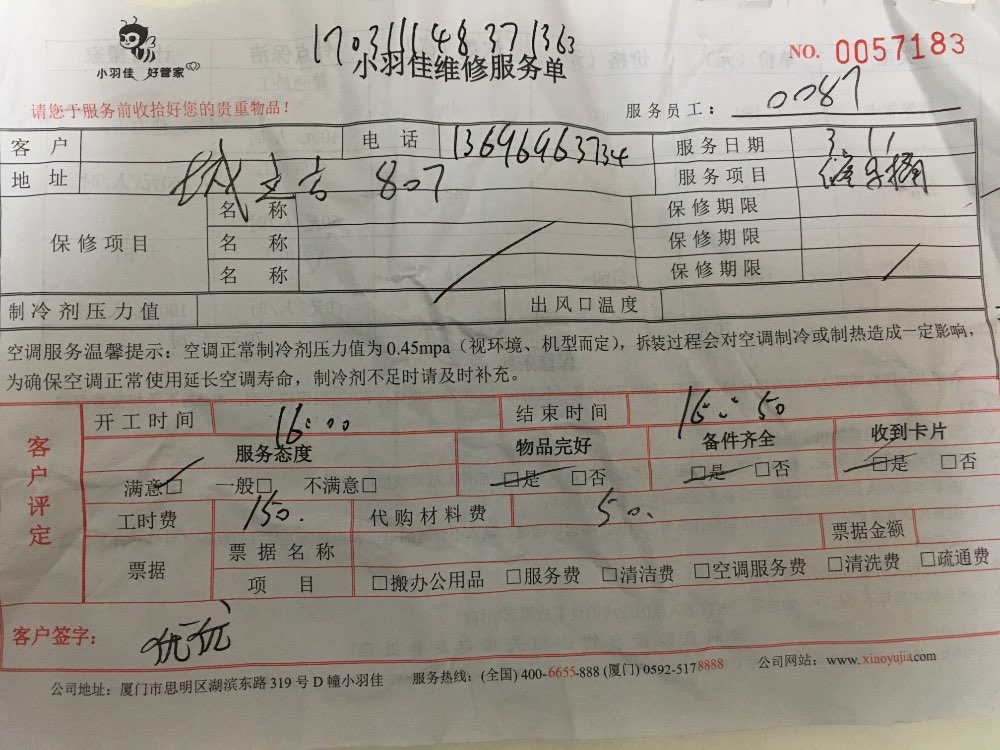 170311148371363
小羽佳 好管家
小羽佳维修服务单
NO. 0057183
请您于服务前收拾好您的贵重物品！
服务员工： 0087
客户 电话 13696963734 服务日期 3.11
地址 807 服务项目
保修项目 名称 保修期限
名称 保修期限
名称 保修期限
制冷剂压力值 出风口温度
空调服务温馨提示：空调正常制冷剂压力值为0.45mpa（视环境、机型而定），拆装过程会对空调制冷或制热造成一定影响，
为确保空调正常使用延长空调寿命，制冷剂不足时请及时补充。
客户评定
开工时间 16:00 结束时间 16:50
服务态度 物品完好 备件齐全 收到卡片
满意□ 一般□ 不满意□ □是 □否 □是 □否 □是 □否
工时费 150. 代购材料费 50.
票据 票据名称 票据金额
项目 □搬办公用品 □服务费 □清洁费 □空调服务费 □清洗费 □疏通费
客户签字：
公司地址：厦门市思明区湖滨东路319号D幢小羽佳 服务热线：(全国) 400-6655-888 (厦门) 0592-5178888 公司网站：www.xiaoyujia.com